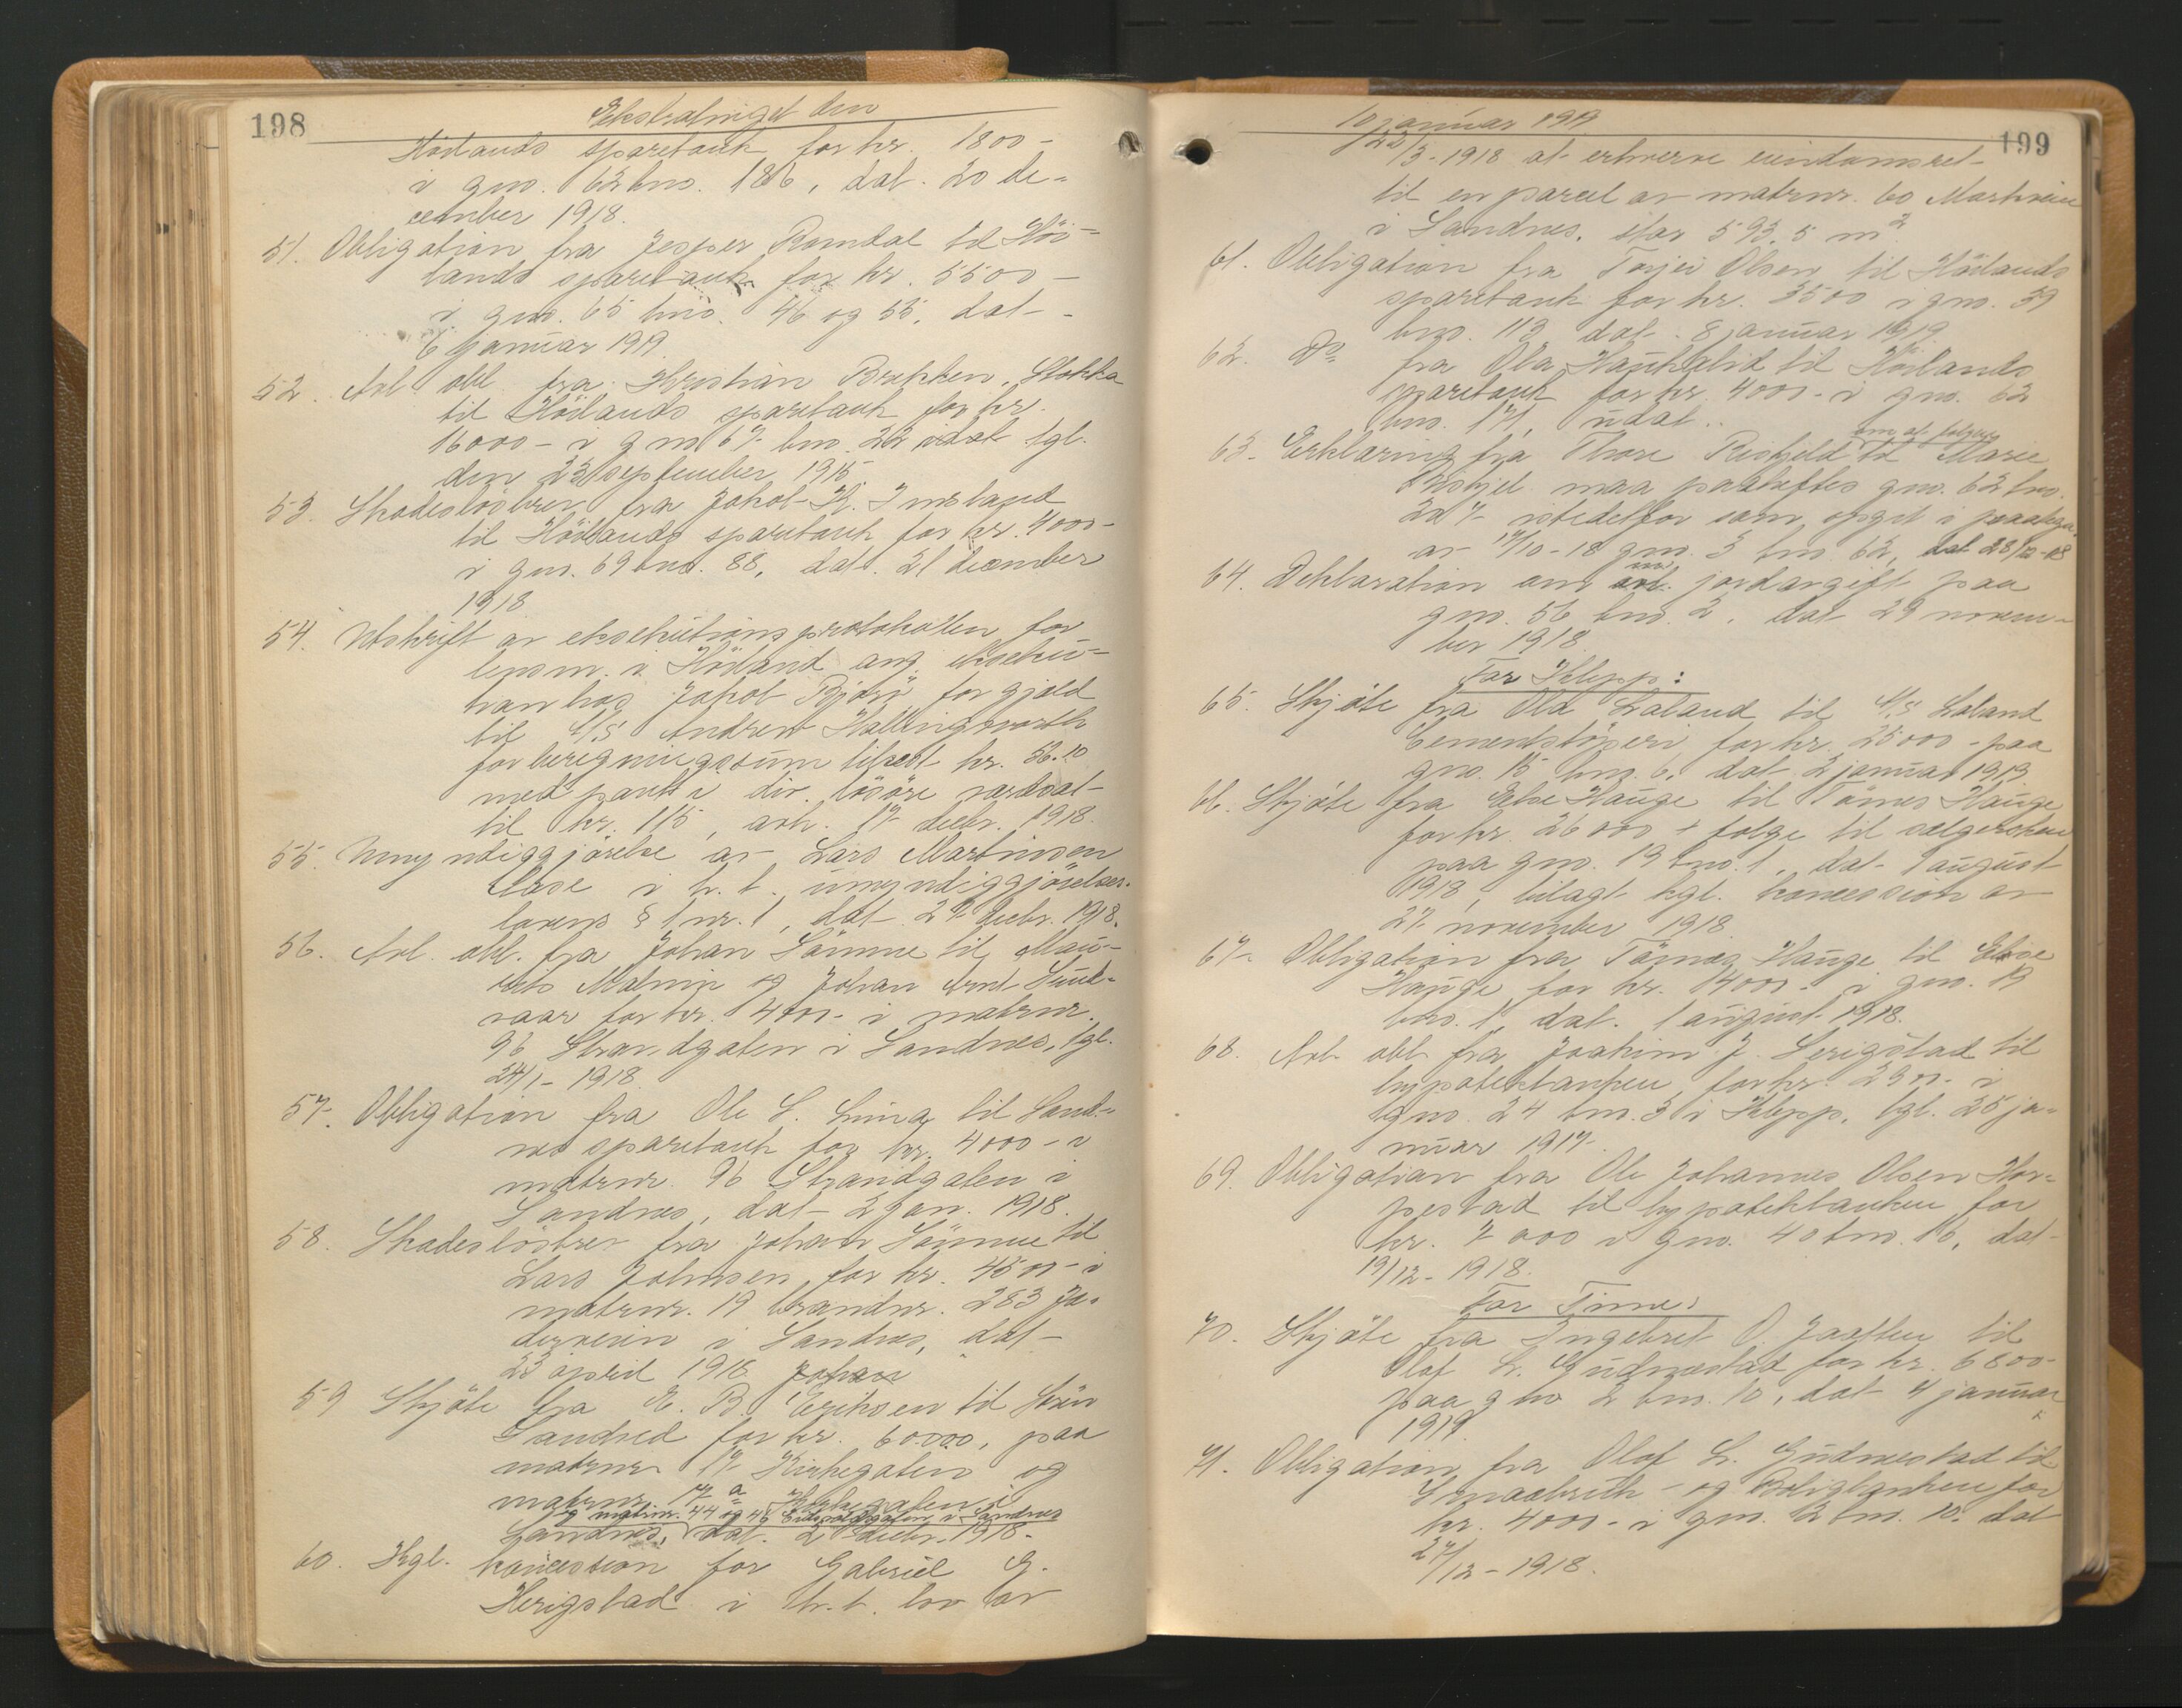 198
Ekstratinget den
Höilands sparebank for kr. 1800 -
i gno. 62 bno. 186, dat. 20 de-
cember 1918.
51. Obligation fra Jesper Romdal til Höi-
lands sparebank for kr. 5500 -
i gno. 65 bno. 46 og 55, dat.
6 januar 1919
52. Avl. obl. fra Kristian Brekken, Stokka
til Höilands sparebank for kr.
16000 - i gno 67 bno. 22 tgl.
den 23 september 1915
53. Skadeslösbrev fra Jakob K. Imsland
til Höilands sparebank for kr. 4000 -
i gno. 69 bno. 88, dat. 21 december
1918
54. Utskrift av eksekutionsprotokollen for
lensm. i Höiland ang. ekseku-
tion hos Jakob for gjæld
til A/S Andrew Hollingworth
for beregningssum tilsat kr. 56.10
med pant i div. lösöre værdsat
til kr. 115, avh. 17 decbr. 1918.
55. Umyndiggjörelse av Lars Martinsen
i h. t. umyndiggjörelses-
lovens § 1 nr. 1, dat 27 decbr. 1918.
56. Avl. obl. fra Johan Sömme til Mau-
rits Malmin og Johan Arnt Sund-
vaar for kr. 4000 - i matrnr.
96 Strandgaten i Sandnes, tgl.
24/1 - 1918
57. Obligation fra Ole S. Lura til Sand-
nes sparebank for kr. 4000 - i
matrnr. 96 Strandgaten i
Sandnes, dat 2 jan. 1918.
58. Skadeslösbrev fra Johan Sömme til
Lars Johnsen for kr. 4500 - i
matrnr. 19 brandnr. 283 Jæ-
derveien i Sandnes, dat
23 april 1918 Johan
59 Skjöte fra E. B. Eriksen til
Sandved for kr. 60.000, paa
matrnr 17 Kirkegaten og
matrnr. 17 a Kirkegaten i
og matrnr. 44 og 46 Eidsvoldsgaten i Sandnes
Sandnes, dat. 2 decbr. 1918.
60. Kgl. koncession for Gabriel G.
Herigstad i h. t. lov av
199
10 januar 1919
22/3 - 1918 at erhverve eiendomsret
til en parcel av matrnr. 60
i Sandnes, stor 593,5 m²
61. Obligation fra Torjei Olsen til Höilands
sparebank for kr. 3500 i gno. 39
bno. 113 dat. 8 januar 1919
62. Do fra Ola Haukalid til Höilands
sparebank for kr. 4000 - i gno. 62
bno. 171, udat..
om at følgen
63. Erklæring fra Thore Riskjeld til Marie
Riskjel maa paaheftes gno. 62 bno.
207 istedetfor som opgit i
av 17/10 - 18 gno. 3 bno. 62, dat 28/12-18
64. Deklaration om jordavgift paa
gno. 56 bno. 2, dat 29 novem-
ber 1918
For Klepp:
65. Skjöte fra Ola Laland til A/S Laland
Cementstöperi for kr. 25000 - paa
gno. 15 bno. 6, dat 2 januar 1919
66. Skjöte fra Else Hauge til Tönnes Hauge
for kr. 26000 + folge til sælgersken
paa gno. 19 bno. 1, dat 1 august
1918, bilagt kgl. koncession av
27 november 1918
67. Obligation fra Tönnes Hauge til Else
Hauge for kr. 14000 - i gno. 19
bno. 1, dat. 1 august 1918.
68. Avl. obl. fra Joakim J. Serigstad til
hypotekbanken for kr. 2300 - i
gno. 24 bno. 3 i Klepp, tgl. 25 ja-
nuar 1917
69. Obligation fra Ole Johannes Olsen Hor-
pestad til hypotekbanken for
kr. 7000 i gno. 40 bno. 16, dat
19/12 - 1918.
For Time:
70. Skjöte fra Ingebret O. Jaatten til
Olaf L. Gudmestad for kr. 6800 -
paa gno 2 bno. 10, dat 4 januar
1919
71. Obligation fra Olaf L. Gudmestad til
Smaabruk- og Boligbanken for
kr. 4000 - i gno. 2 bno. 10. dat
27/12 - 1918.